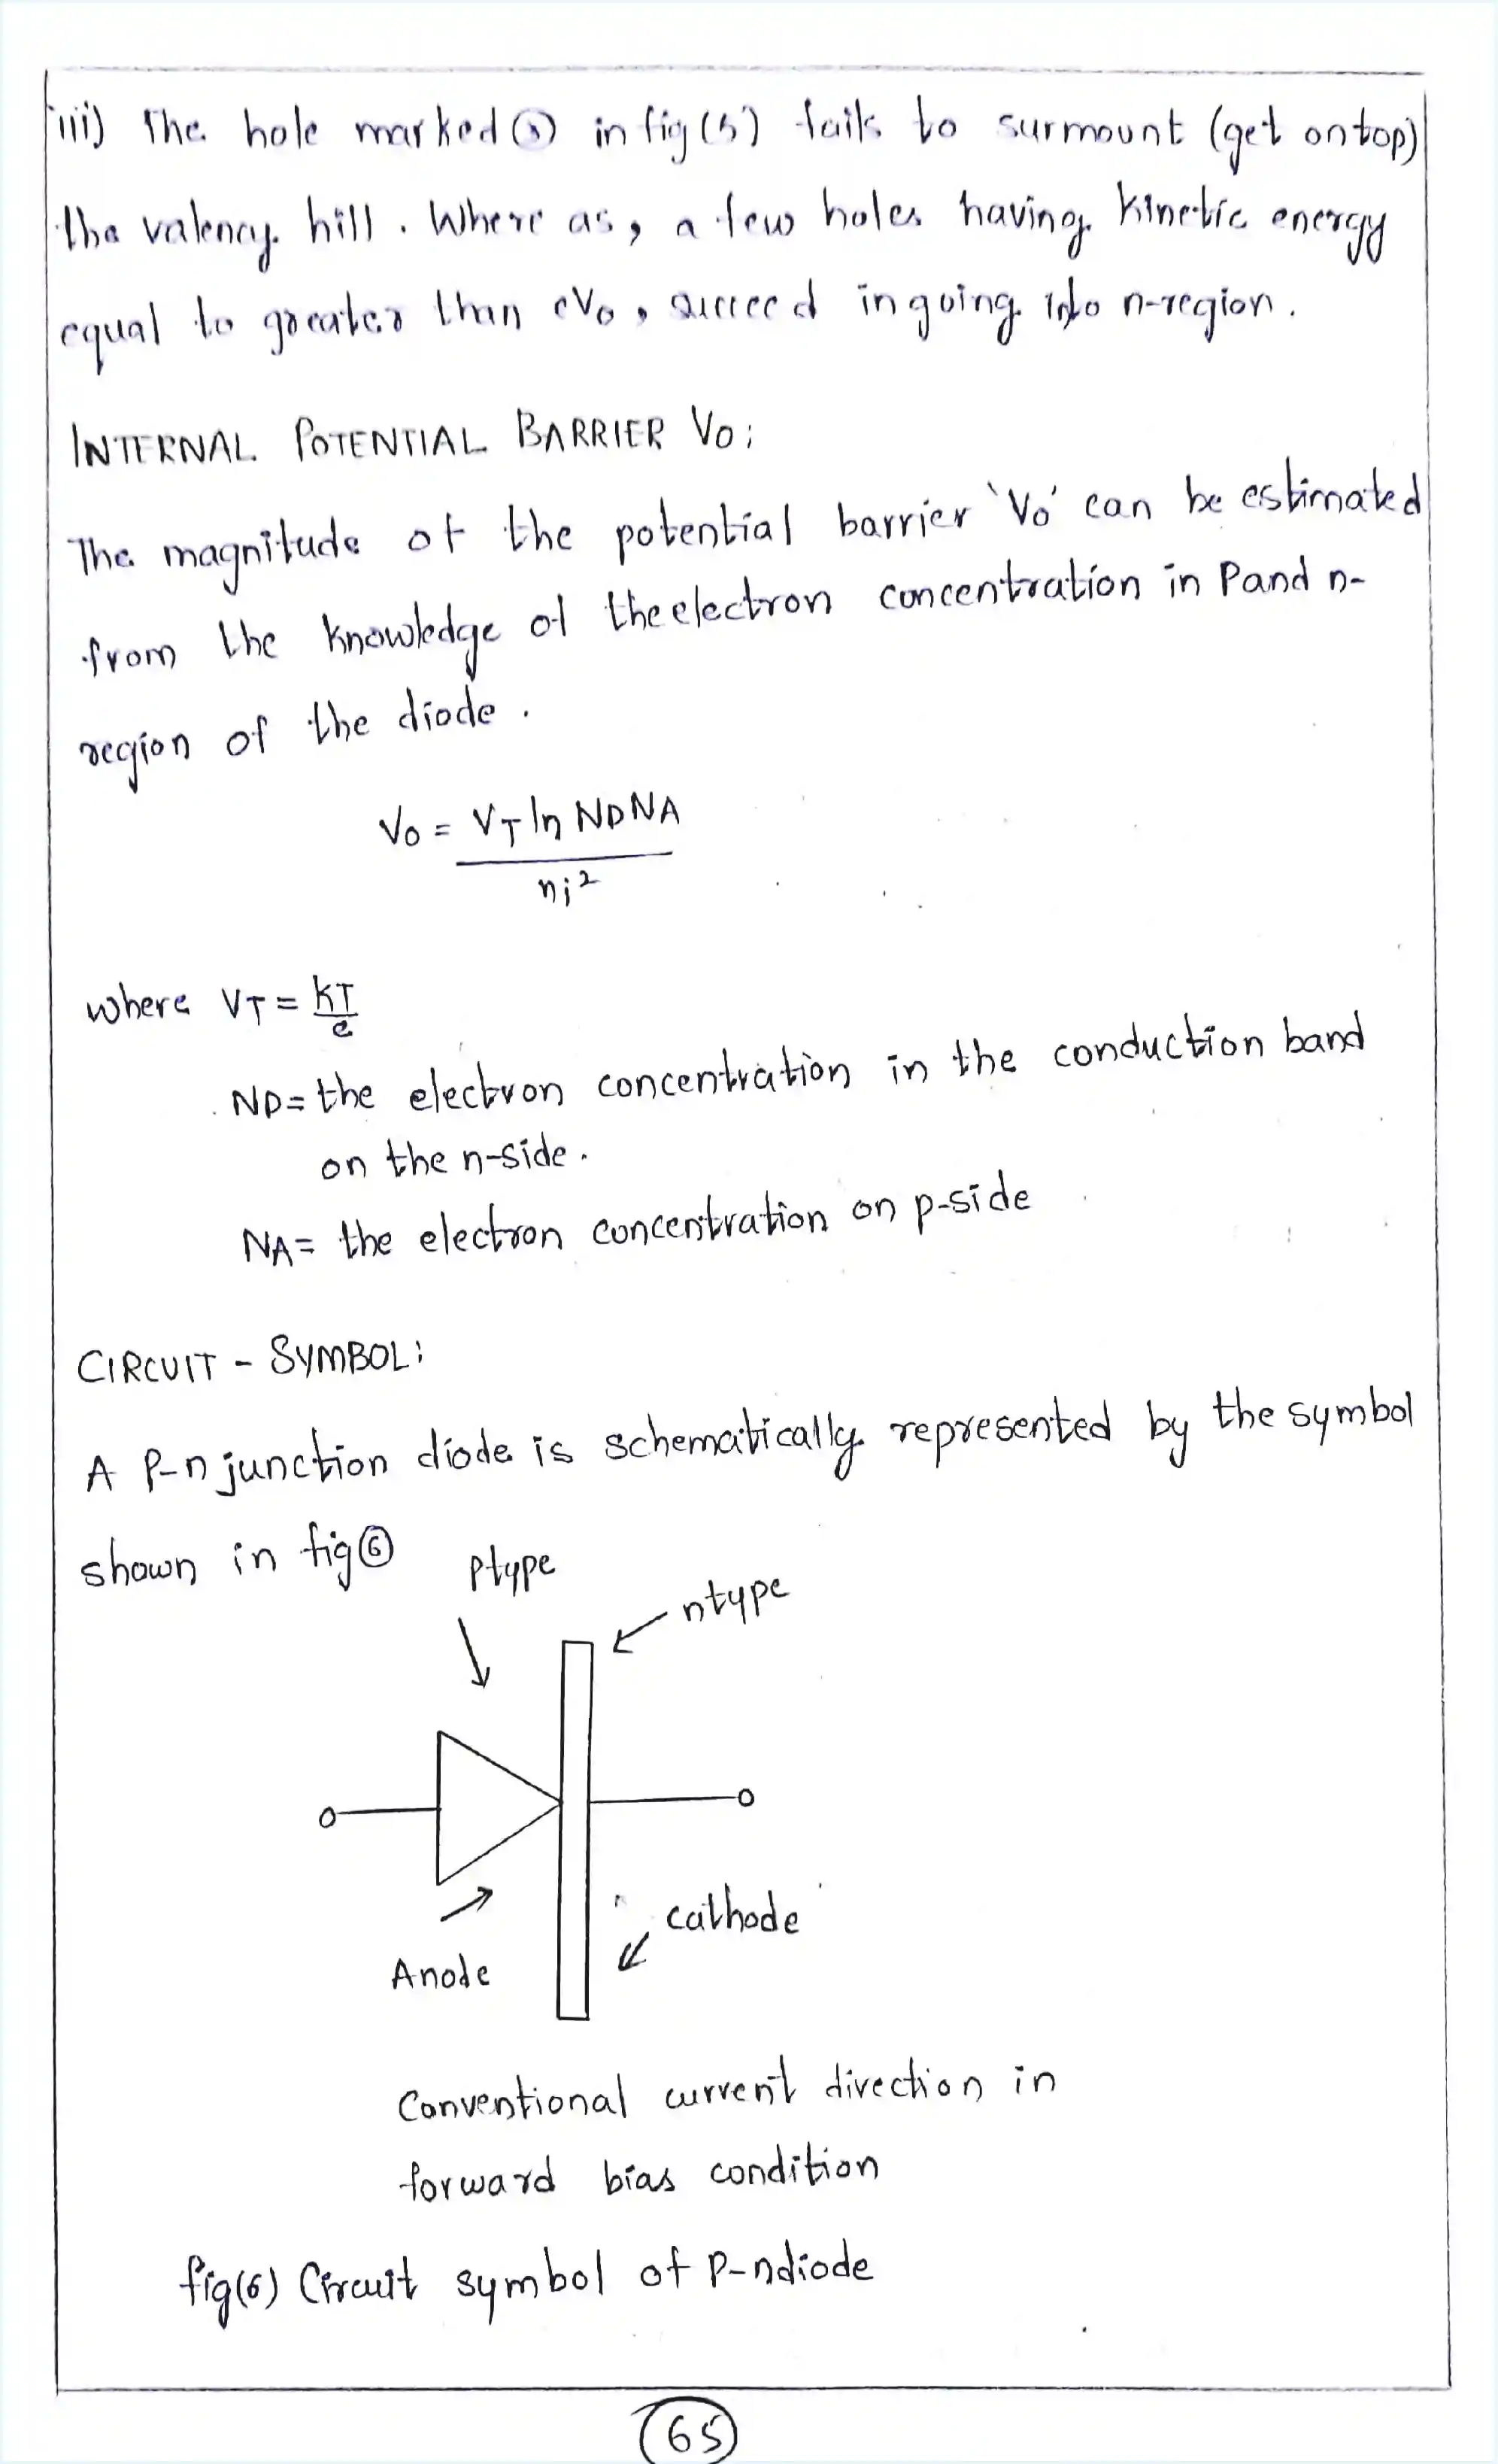 iii) The hole marked in fig (5) fails to surmount (get on top)
the valency hill. Where as, a few holes having kinetic energy
equal to greater than eVo, succeed in going into n-region.
INTERNAL POTENTIAL BARRIER Vo:
The magnitude of the potential barrier 'Vo' can be estimated
from the knowledge of the electron concentration in P and n-
region of the diode.
Vo = VT ln NDNA
ni²
where VT = KT
e
ND = the electron concentration in the conduction band
on the n-side.
NA = the electron concentration on p-side
CIRCUIT - SYMBOL:
A P-n junction diode is schematically represented by the symbol
shown in fig ⑥
Ptype
ntype
cathode
Anode
Conventional current direction in
forward bias condition
fig(6) Circuit symbol of P-n diode
65